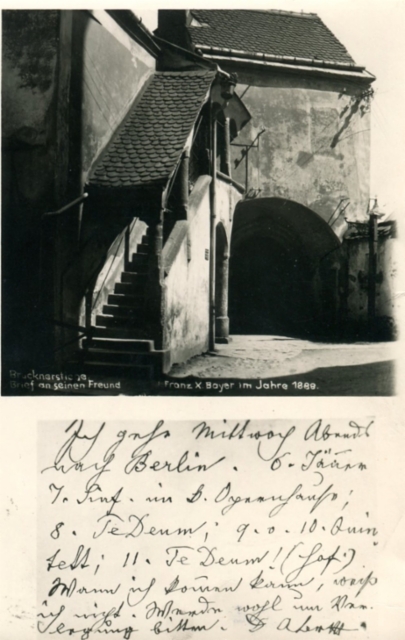 Brucknerstiege.
Brief an seinen Freund Franz X. Bayer im Jahre 1889.
Ich gehe Mittwoch Abends
nach Berlin. 6. Jänner
7. Sinf. im k. Opernhause;
8. TeDeum; 9. o. 10. Quin
tett; 11. TeDeum! (Hof.)
Wann ich kommen kann, weiß
ich nicht. Werde wohl um Ver
legung bitten. D